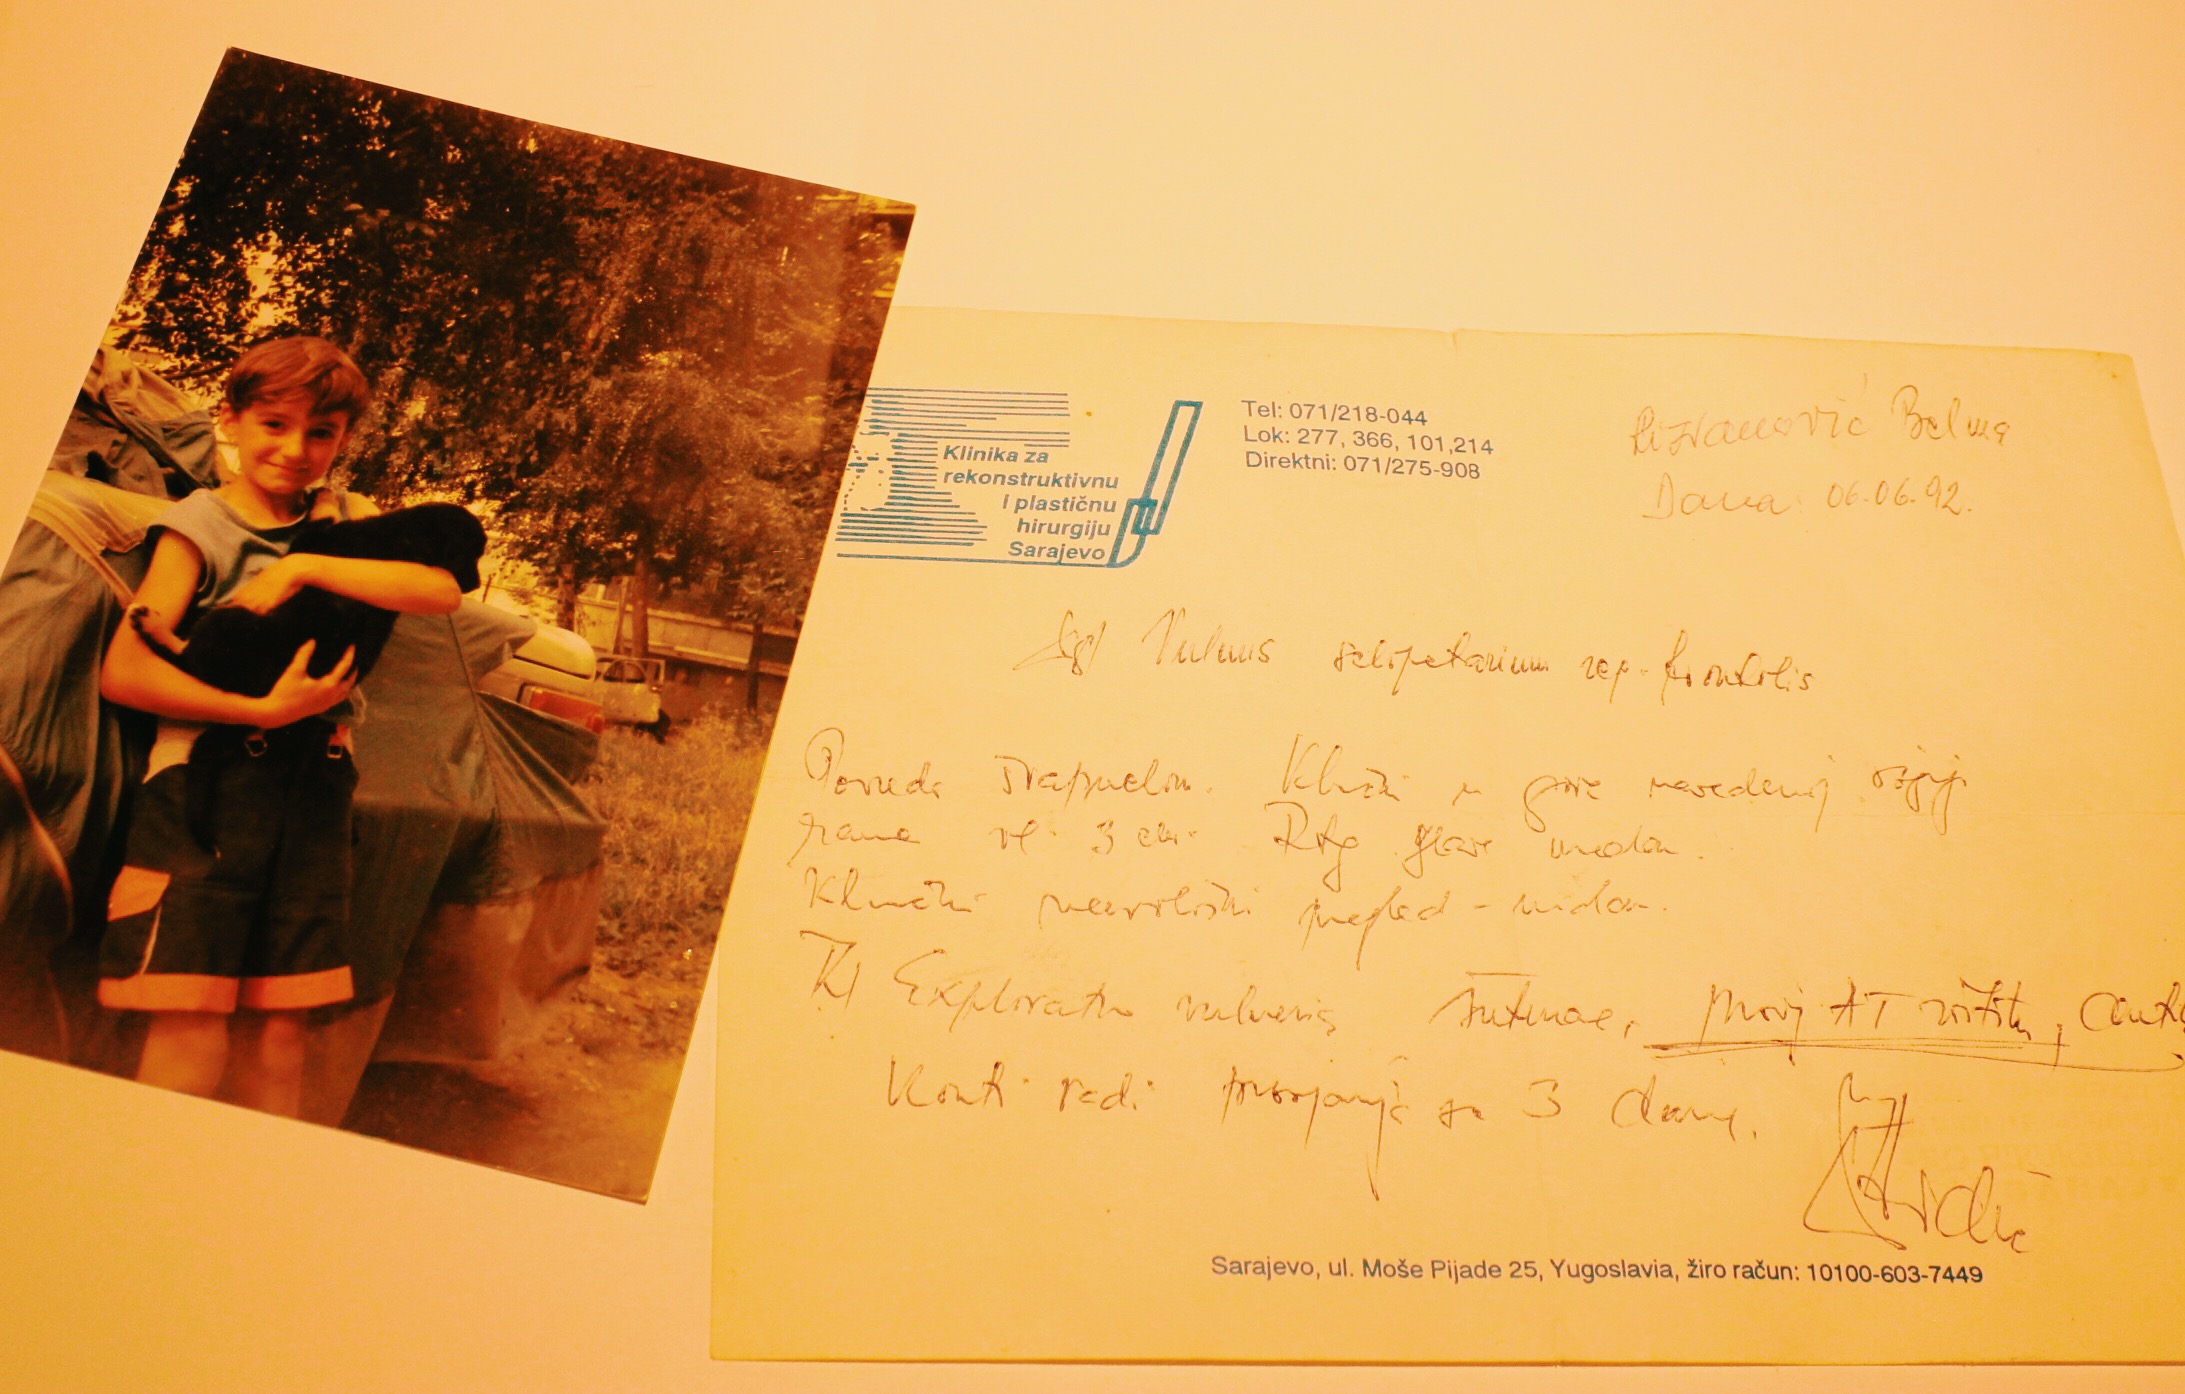 Klinika za
rekonstruktivnu
i plastičnu
hirurgiju
Sarajevo
Tel: 071/218-044
Lok: 277, 366, 101,214
Direktni: 071/275-908
Rizvanović Belma
Dana: 06.06.92.
Dg/ Vulnus sclopetarium reg. frontalis
Povreda šrapnelom. Klinički u gore navedenoj regiji
rana vel. 3 cm. Rtg glave uredan.
Klinički neurološki pregled - uredan.
Th/ Exploratio vulneris, suturae, AT zaštitu,
Kont radi previjanja za 3 dana.
Sarajevo, ul. Moše Pijade 25, Yugoslavia, žiro račun: 10100-603-7449